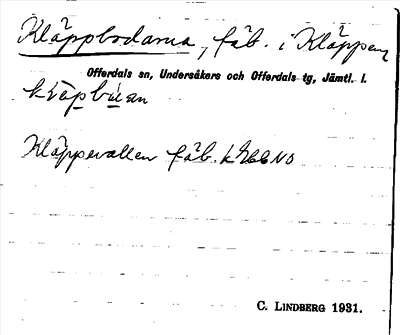 Kläppbodarna, fäb. i Kläppen
Offerdals sn, Undersåkers och Offerdals tg, Jämtl. l.
Kläppevallen fäb.
C. LINDBERG 1931.